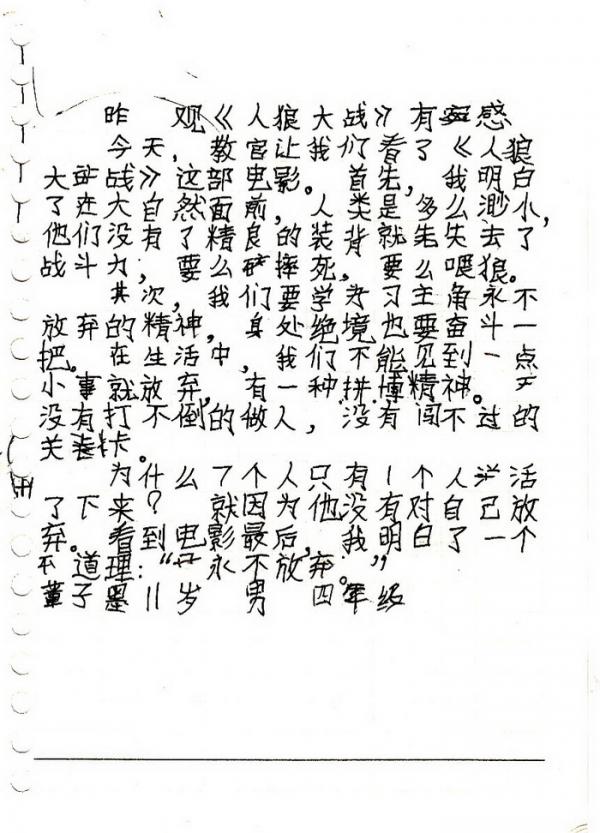 昨 观《人狼大战》有感
今天,教官让我们看了《人狼
大战》这部电影。首先,我明白
了在大自然面前,人类是多么渺小,
他们没有了精良的装背,就先失去了
战斗力,要么摔死,要么喂狼。
其次,我们要学习主角永不
放弃的精神,身处绝境也要奋斗一
把。在生活中,我们不能见到一点
小事就放弃,有一种拼博精神。天
没有打不倒的做人,没有闯不过的
关卡。
为什么7个人只有1个人活
了下来?就因为他没有对自己放
弃。看到电影最后,我明白了一个
道理:“永不放弃。”
董子墨 11岁 男 四年级